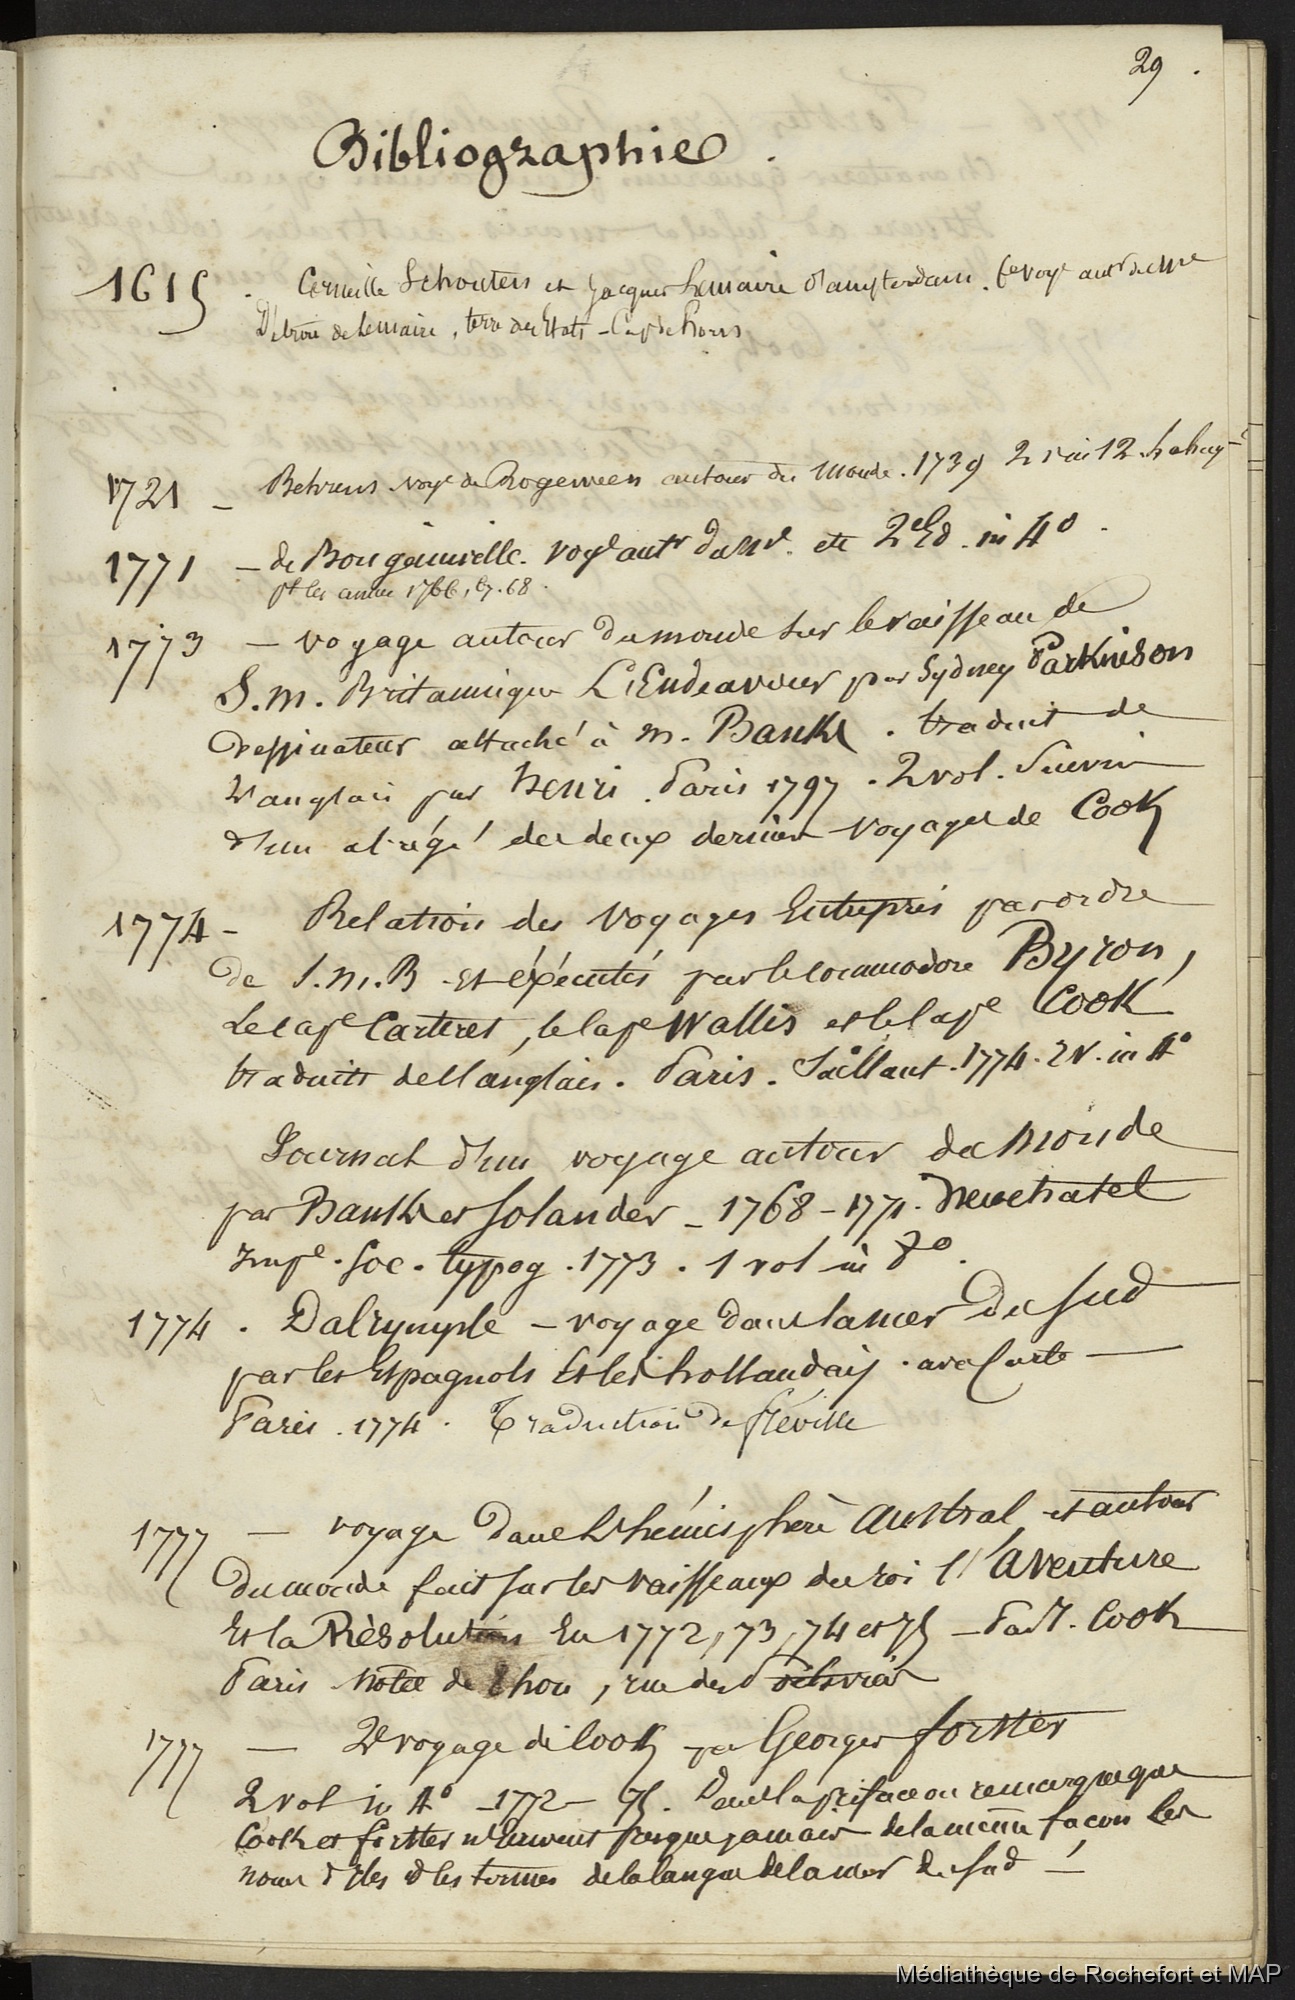 29.
Bibliographie.
1615. Corneille Schouten et Jacques Lemaire d'amsterdam. voye autr du me
Détroit de Lemaire, terre des Etats - Cap de horn
1721 - Behrens voye de Rogeween autour du monde. 1739 2 v in 12. La haye
1771 - de Bougainville. voye autr du me. etc 2e Ed. in 4o.
pt les années 1766, 67. 68.
1773 - voyage autour du monde sur le vaisseau de
S. m. Britannique L'Endeavour par Sydney Parkinson
dessinateur attaché à m. Banks. traduit de
l'anglais par henri. Paris 1797. 2 vol. Suivie
d'un abrégé des deux derniers voyages de Cook
1774 - Relation des voyages Entrepris par ordre
de S. M. B et éxécutés par le commodore Byron,
le cape Carteret, le cape Wallis et le cape Cook
traduits de l'anglais. Paris. Saillant. 1774. 2 V. in 4o
Journal d'un voyage autour du monde
par Banks et Solander - 1768 - 1771. Neuchatel
Impe. Soc. typog. 1773. 1 vol in 8o.
1774. Dalrymple - voyage dans la mer du Sud
par les Espagnols et les hollandais. avec Carte
Paris. 1774. Traduction de fréville
1777 - voyage dans l'hémisphère austral et autour
du monde fait sur les vaisseaux du roi l'aventure
et la Résolution En 1772, 73, 74 et 75 - Par J. Cook
Paris hotel de thou, rue des Poitevins
1777 - 2e voyage de Cook par Georges forster
2 vol in 4o - 1772 - 75. Dans la préface on remarque que
Cook et forster n'écrivent presque jamais de la même façon les
noms d'Iles et les termes de la langue de la mer du Sud -
Médiathèque de Rochefort et MAP